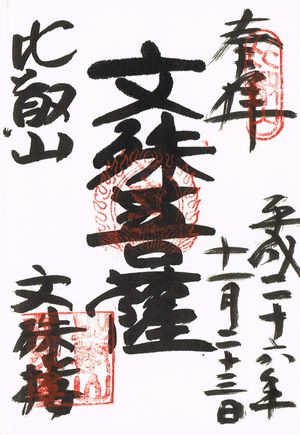 奉拝
平成二十六年
十一月二十三日
文殊菩薩
比叡山
文殊楼